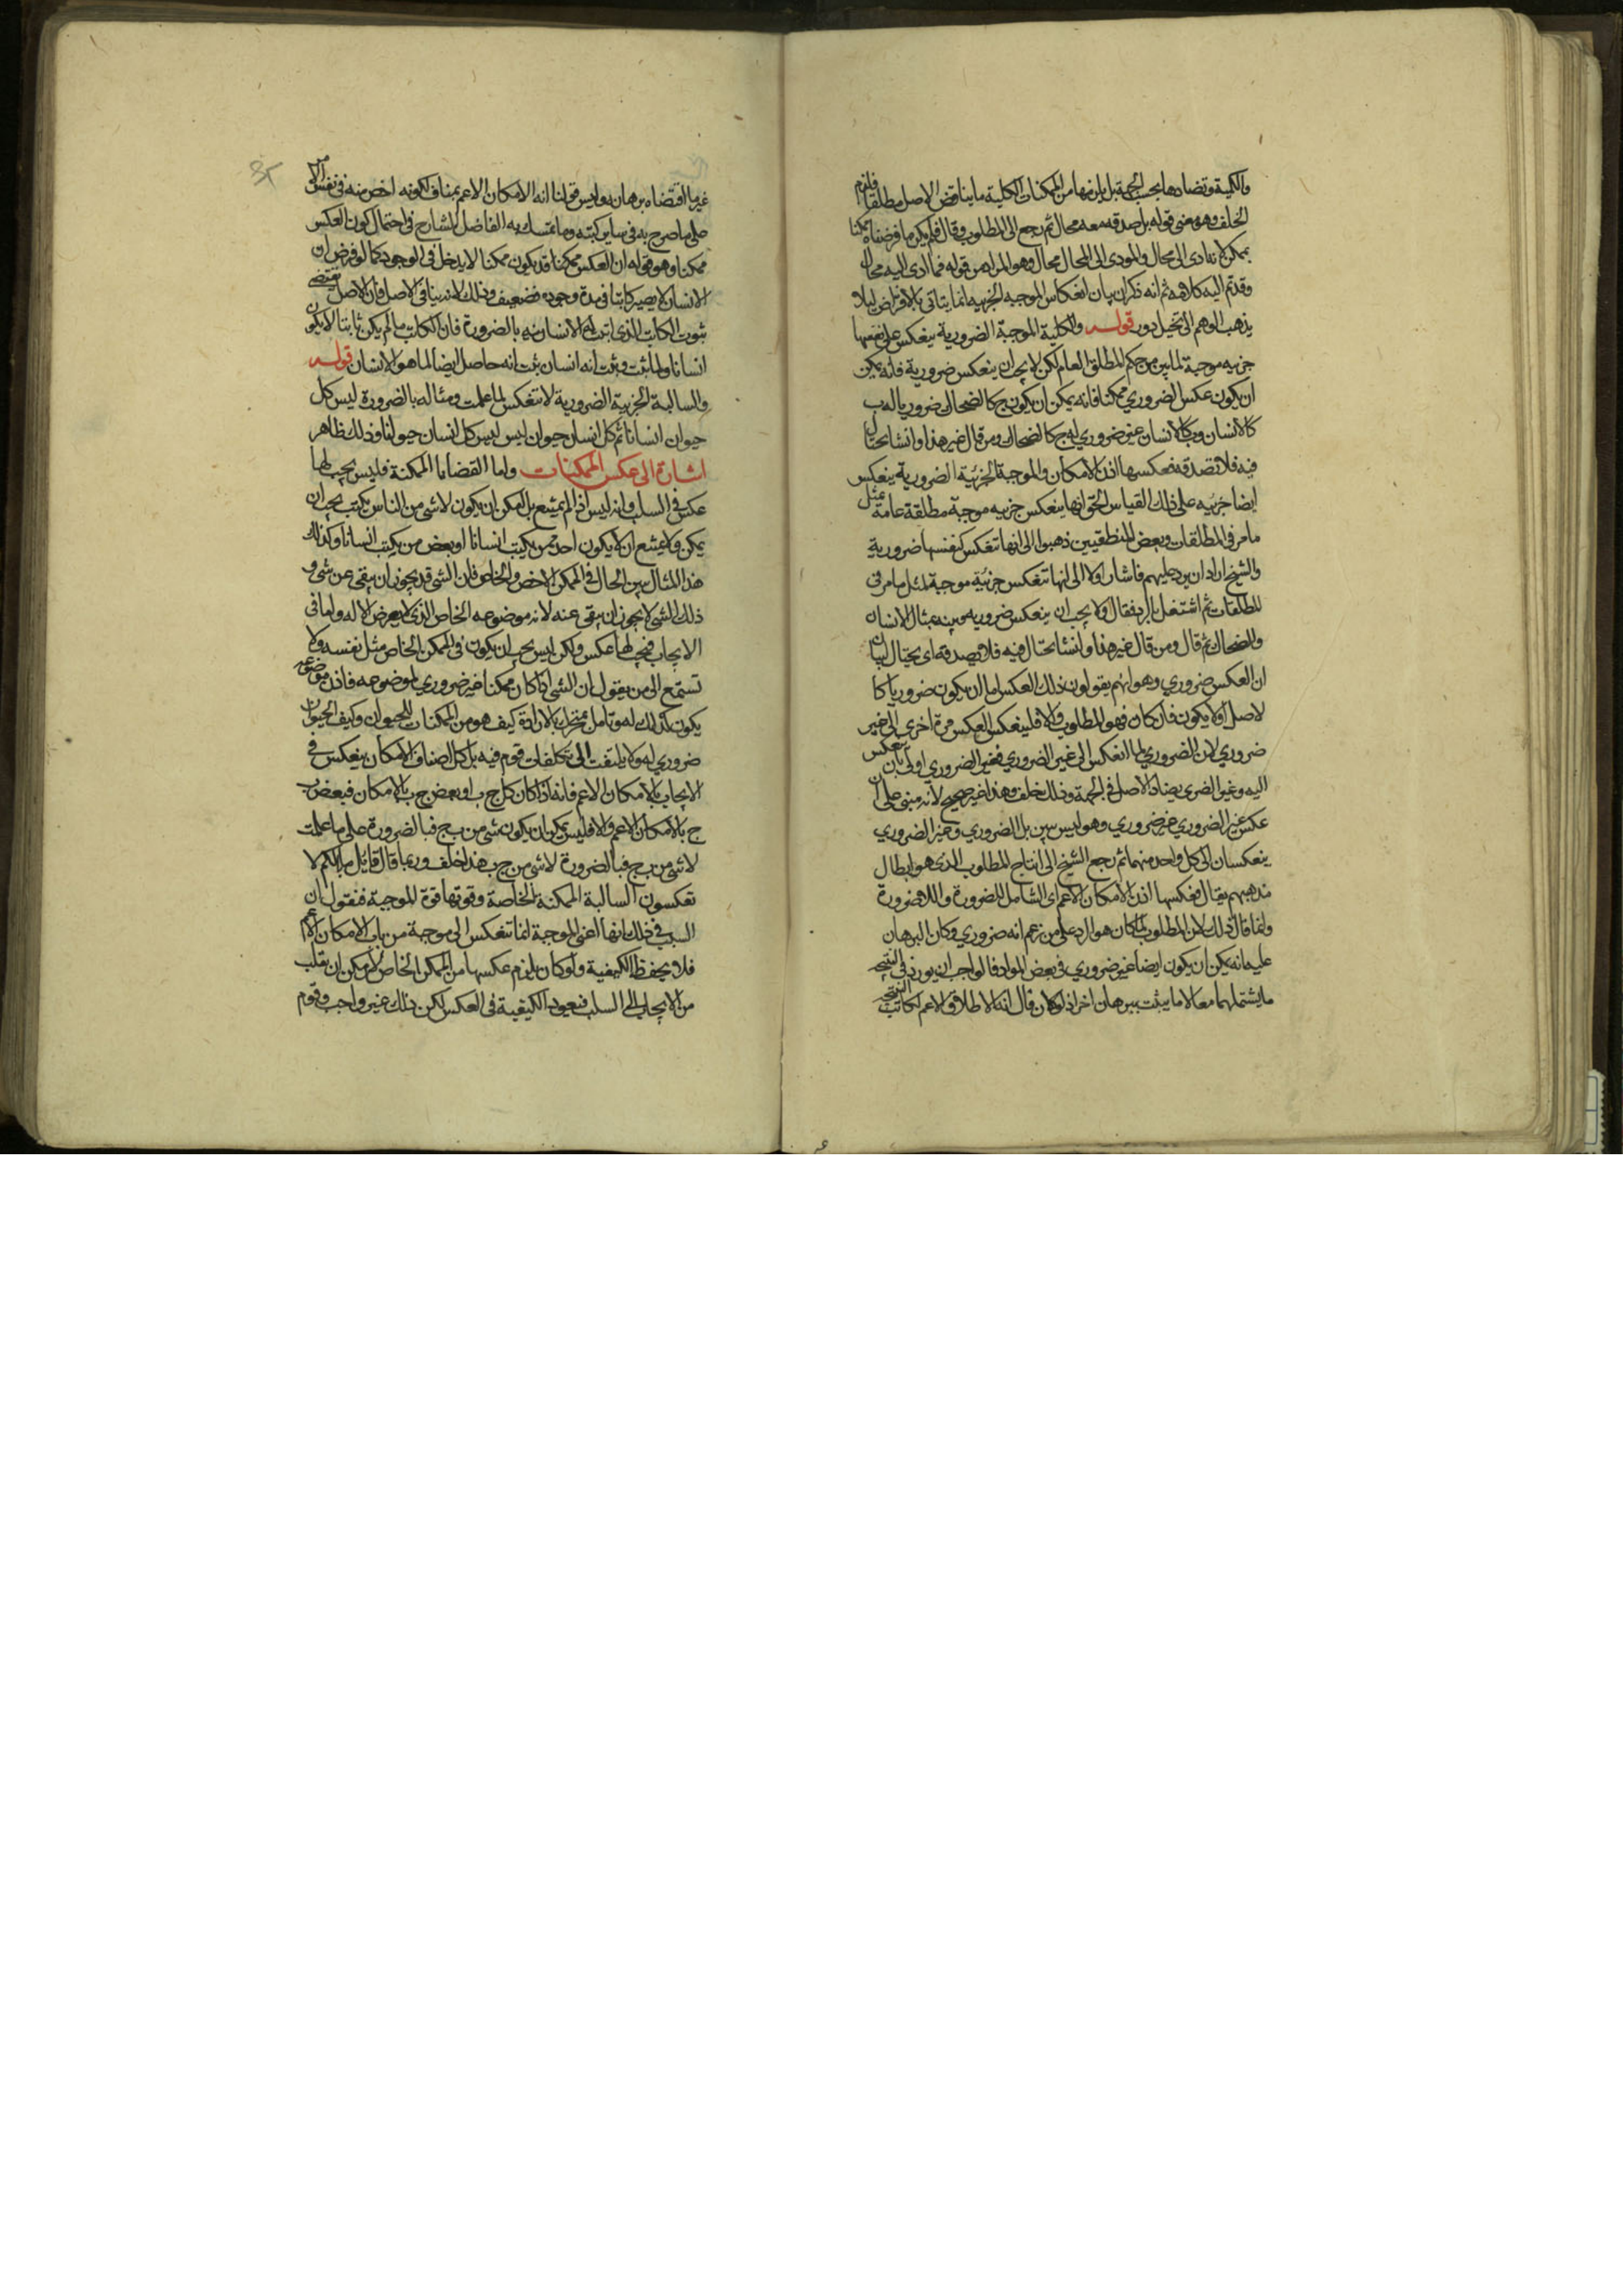 والكلية وتضادها بحسب الجهة بل يلزمها من الممكنات الكلية ما يناقض الاصل مطلقا فلزم
الخلف وهو معنى قوله بل صدقه معه محال ثم رجع الى المطلوب وقال فلم يكن ما فرضناه ممكنا
يمكن لانه ادى الى محال والمودى الى المحال محال وهو المراد من قوله فما ادى اليه محال
وقد تم اليه كلامه ثم انه ذكر ان بيان انعكاس الموجبه الجزييه انما يتاتى بالافتراض ليلا
يذهب الوهم الى تخيل دور قوله والكلية الموجبة الضرورية ينعكس على نفسها
جزييه موجبة لما بين من حكم المطلق العام لكن لا يجب ان ينعكس ضرورية فانه يمكن
ان يكون عكس الضروري ممكنا فانه يمكن ان يكون ج كالضحاك ضروريا له ب
كالانسان وب كالانسان غير ضروري له ج كالضحاك ومن قال غير هذا وانشا يحتال
فيه فلا تصدقه فعكسها اذن الامكان والموجبة الجزئية الضرورية ينعكس
ايضا جزييه على ذلك القياس الحق انها ينعكس جزييه موجبة مطلقة عامة بمثل
ما مر في المطلقات وبعض المنطقيين ذهبوا الى انها تنعكس كنفسها ضرورية
والشيخ اراد ان يرد عليهم فاشار اولا الى انها تنعكس جزئية موجبة لمثل ما مر في
المطلقات ثم اشتغل بالرد فقال ولا يجب ان ينعكس ضروريه وبينه بمثال الانسان
والضحاك ثم قال ومن قال غير هذا وانشا يحتال فيه فلا تصدقه اى يحتال لبيان
ان العكس ضروري وهو انهم يقولون ذلك العكس اما ان يكون ضروريا كا
لاصل او لا يكون فان كان فهو المطلوب والا فلينعكس العكس مرة اخرى الى غير
ضروري لان الضروري لما انعكس الى غير الضروري فغير الضروري اولى بان ينعكس
اليه وغير الضرى يضاد الاصل في الجهة وذلك خلف وهذا غير صحيح لانه مبنى على ان
عكس غير الضروري غير ضروري وهو ليس ببين بل الضروري وغير الضروري
ينعكسان الى كل واحد منهما ثم رجع الشيخ الى انتاج المطلوب الذى هو ابطال
مذهبهم فقال فعكسها اذن الامكان الاعم اى الشامل للضرورة واللاضرورة
وانما قال ذلك لان المطلوب لما كان هو الرد على من زعم انه ضروري وكان البرهان
عليه انه يمكن ان يكون ايضا غير ضروري في بعض المواد فالواجب ان يورد في النتيجه
ما يشتملهما معا لا ما يثبت ببرهان اخر اذ لو كان قال انه الاطلاق الاعم لكانت النتيجه
غير ما اقتضاه برهانه وليس قولنا انه الامكان الاعم بمناف لكونه اخص منه في نفس الامر
على ما صرح به في ساير كتبه وما تمسك به الفاضل الشارح في احتمال كون العكس
ممكنا وهو قوله ان العكس ممكنا قد يكون ممكنا لا يدخل في الوجود كما لو فرض ان
الانسان لا يصير كاتبا في مدة وجوده فضعيف وذلك لانه ينافى الاصل فان الاصل يقتضى
ثبوت الكاتب الذى اثبت له الانسان به بالضرورة فان الكاتب ما لم يكن ثابتا لا يكون
انسانا ولما ثبت وثبت انه انسان ثبت انه حاصل ايضا لما هو الانسان قوله
والسالبة الجزيية الضرورية لا تنعكس لما علمت ومثاله بالضرورة ليس كل
حيوان انسانا ثم كل انسان حيوان ليس ليس كل انسان حيوانا وذلك ظاهر
اشارة الى عكس الممكنات واما القضايا الممكنة فليس يجب لها
عكس في السلب فانه ليس اذ لم يمتنع بل امكن ان يكون لا شى من الناس يكتب يجب ان
يمكن ولا يمتنع ان لا يكون احد ممن يكتب انسانا او بعض من يكتب انسانا وكذلك
هذا المثال يبين الحال في الممكن الاخص والخاص فان الشى قد يجوز ان ينفى عن شى و
ذلك الشى لا يجوز ان ينفى عنه لانه موضوعه الخاص الذى لا يعرض الا له واما في
الايجاب فيجب لها عكس ولكن ليس يجب ان يكون في الممكن الخاص مثل نفسه ولا
تستمع الى من يقول ان الشى اذا كان ممكنا غير ضروري لموضوعه فاذن موضوعه
يكون كذلك له وتامل المتحرك بالارادة كيف هو من الممكنات للحيوان وكيف الحيوان
ضروري له ولا يلتفت الى تكلفات قوم فيه بل كل اصناف الامكان ينعكس في
الايجاب بالامكان الاعم فانه اذا كان كل ج ب او بعض ج ب بالامكان فبعض ب
ج بالامكان الاعم والا فليس يمكن ان يكون شى من ب ج فبالضرورة على ما علمت
لا شى من ب ج فبالضرورة لا شى من ج ب هذا خلف وربما قال قائل ما بالكم لا
تعكسون السالبة الممكنة الخاصة وقوتها قوة الموجبة فنقول ان
السبب في ذلك انها اعنى الموجبة انما تنعكس الى موجبة من باب الامكان الاعم
فلا يحفظ الكيفية ولو كان يلزم عكسها من الممكن الخاص لامكن ان يقلب
من الايجاب الى السلب فيعود الكيفية في العكس لكن ذلك غير واجب وقوم